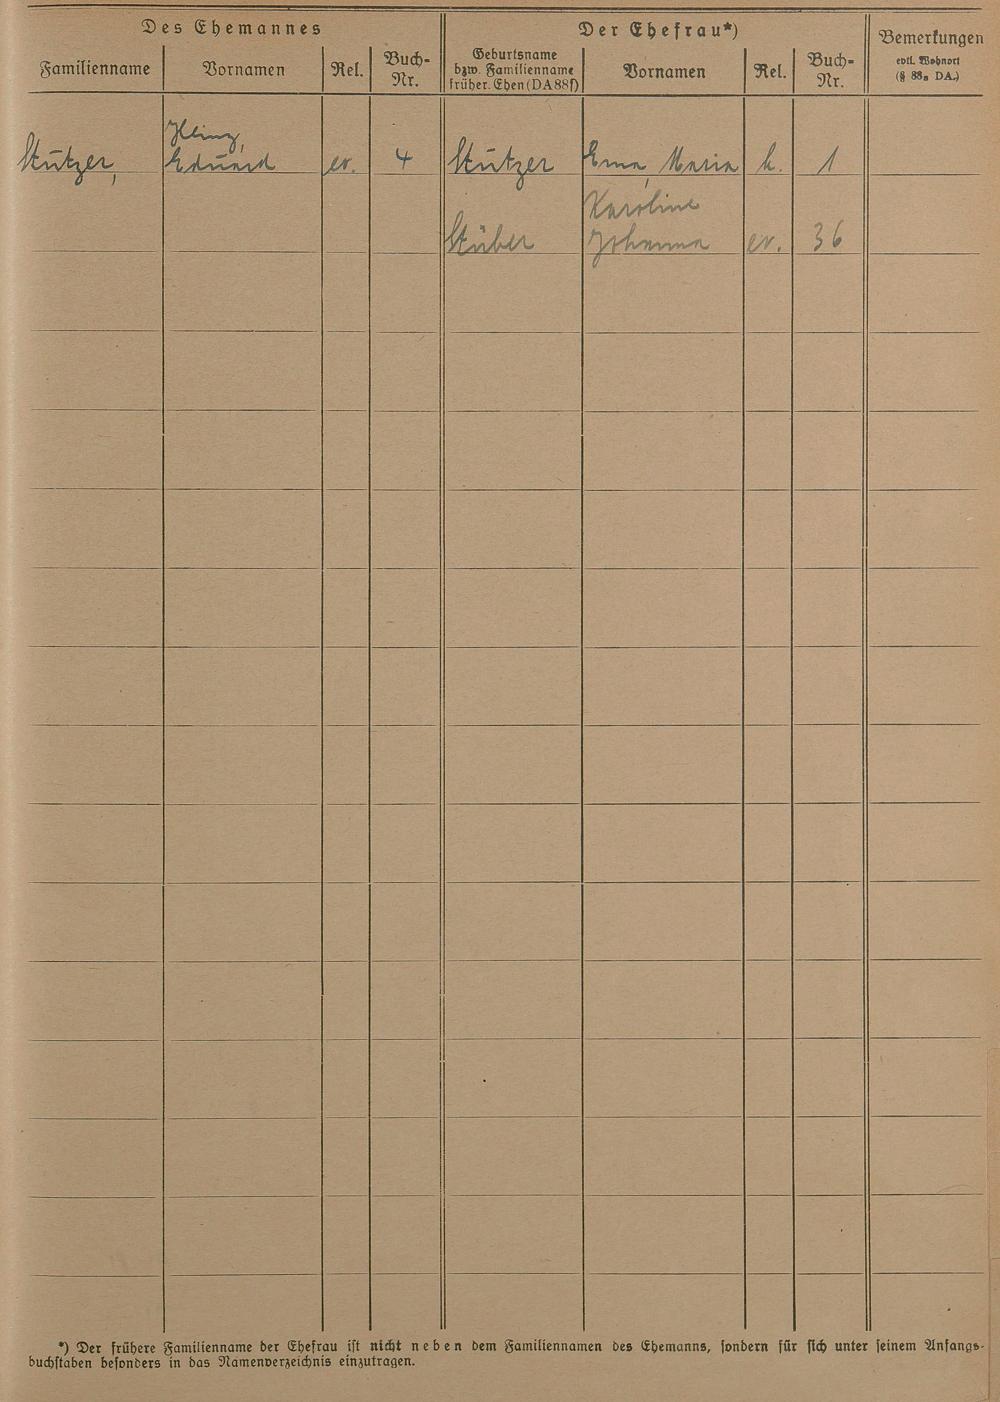 Des Ehemannes
Der Ehefrau*)
Bemerkungen
evtl. Wohnort
(§ 88a DA.)
Familienname
Vornamen
Rel.
Buch-
Nr.
Geburtsname
bzw. Familienname
früher. Ehen (DA 88f)
Vornamen
Rel.
Buch-
Nr.
Heinz,
Stützer, Eduard ev. 4 Stützer Erna, Maria k. 1
Karoline
Stüber Johanna ev. 36
*) Der frühere Familienname der Ehefrau ist nicht neben dem Familiennamen des Ehemanns, sondern für sich unter seinem Anfangs-
buchstaben besonders in das Namenverzeichnis einzutragen.